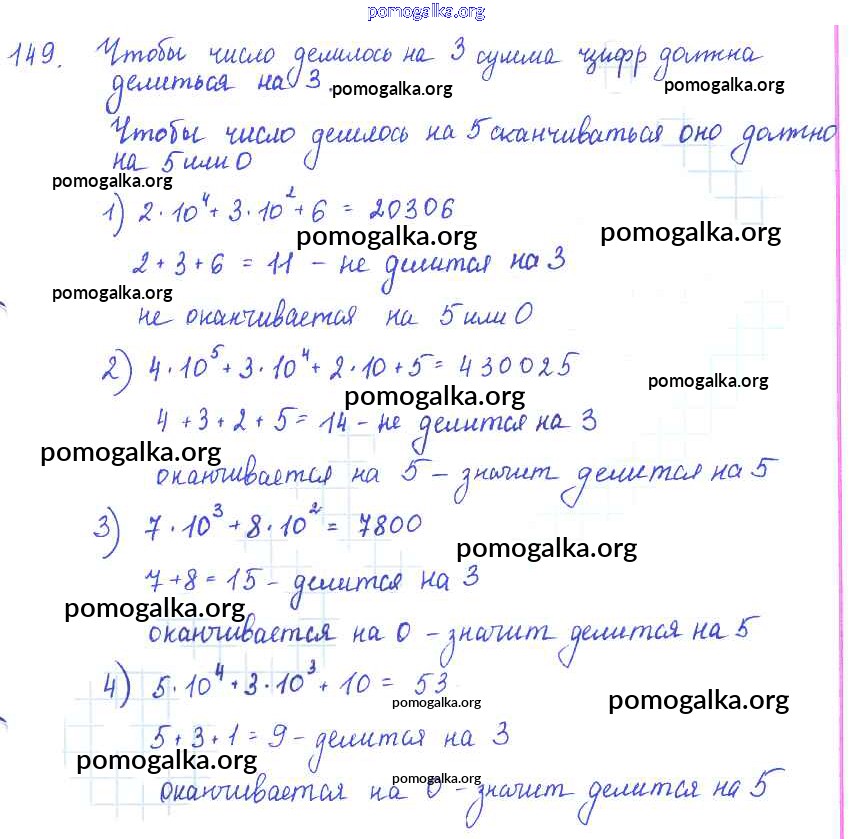 pomogalka.org
149. Чтобы число делилось на 3 сумма цифр должна
делиться на 3.
pomogalka.org
pomogalka.org
Чтобы число делилось на 5 сканчиваться оно должно
на 5 или 0
pomogalka.org
1) 2·10⁴+3·10²+6 = 20306
pomogalka.org
pomogalka.org
2+3+6 = 11 – не делится на 3
pomogalka.org
не оканчивается на 5 или 0
2) 4·10⁵+3·10⁴+2·10+5= 430025
pomogalka.org
pomogalka.org
4+3+2+5= 14 – не делится на 3
pomogalka.org
оканчивается на 5 – значит делится на 5
3) 7·10³+8·10²= 7800
pomogalka.org
7+8=15 – делится на 3
pomogalka.org
оканчивается на 0 – значит делится на 5
4) 5·10⁴+3·10³+10 = 53
pomogalka.org
pomogalka.org
5+3+1=9 – делится на 3
pomogalka.org
pomogalka.org
оканчивается на 0 – значит делится на 5